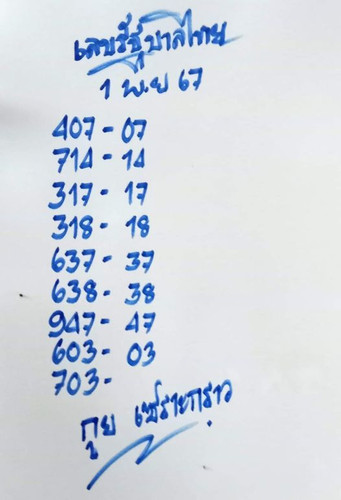 เลขรัฐบาลไทย
1 พ.ย 67
407 - 07
714 - 14
317 - 17
318 - 18
637 - 37
638 - 38
947 - 47
603 - 03
703 -
กูย